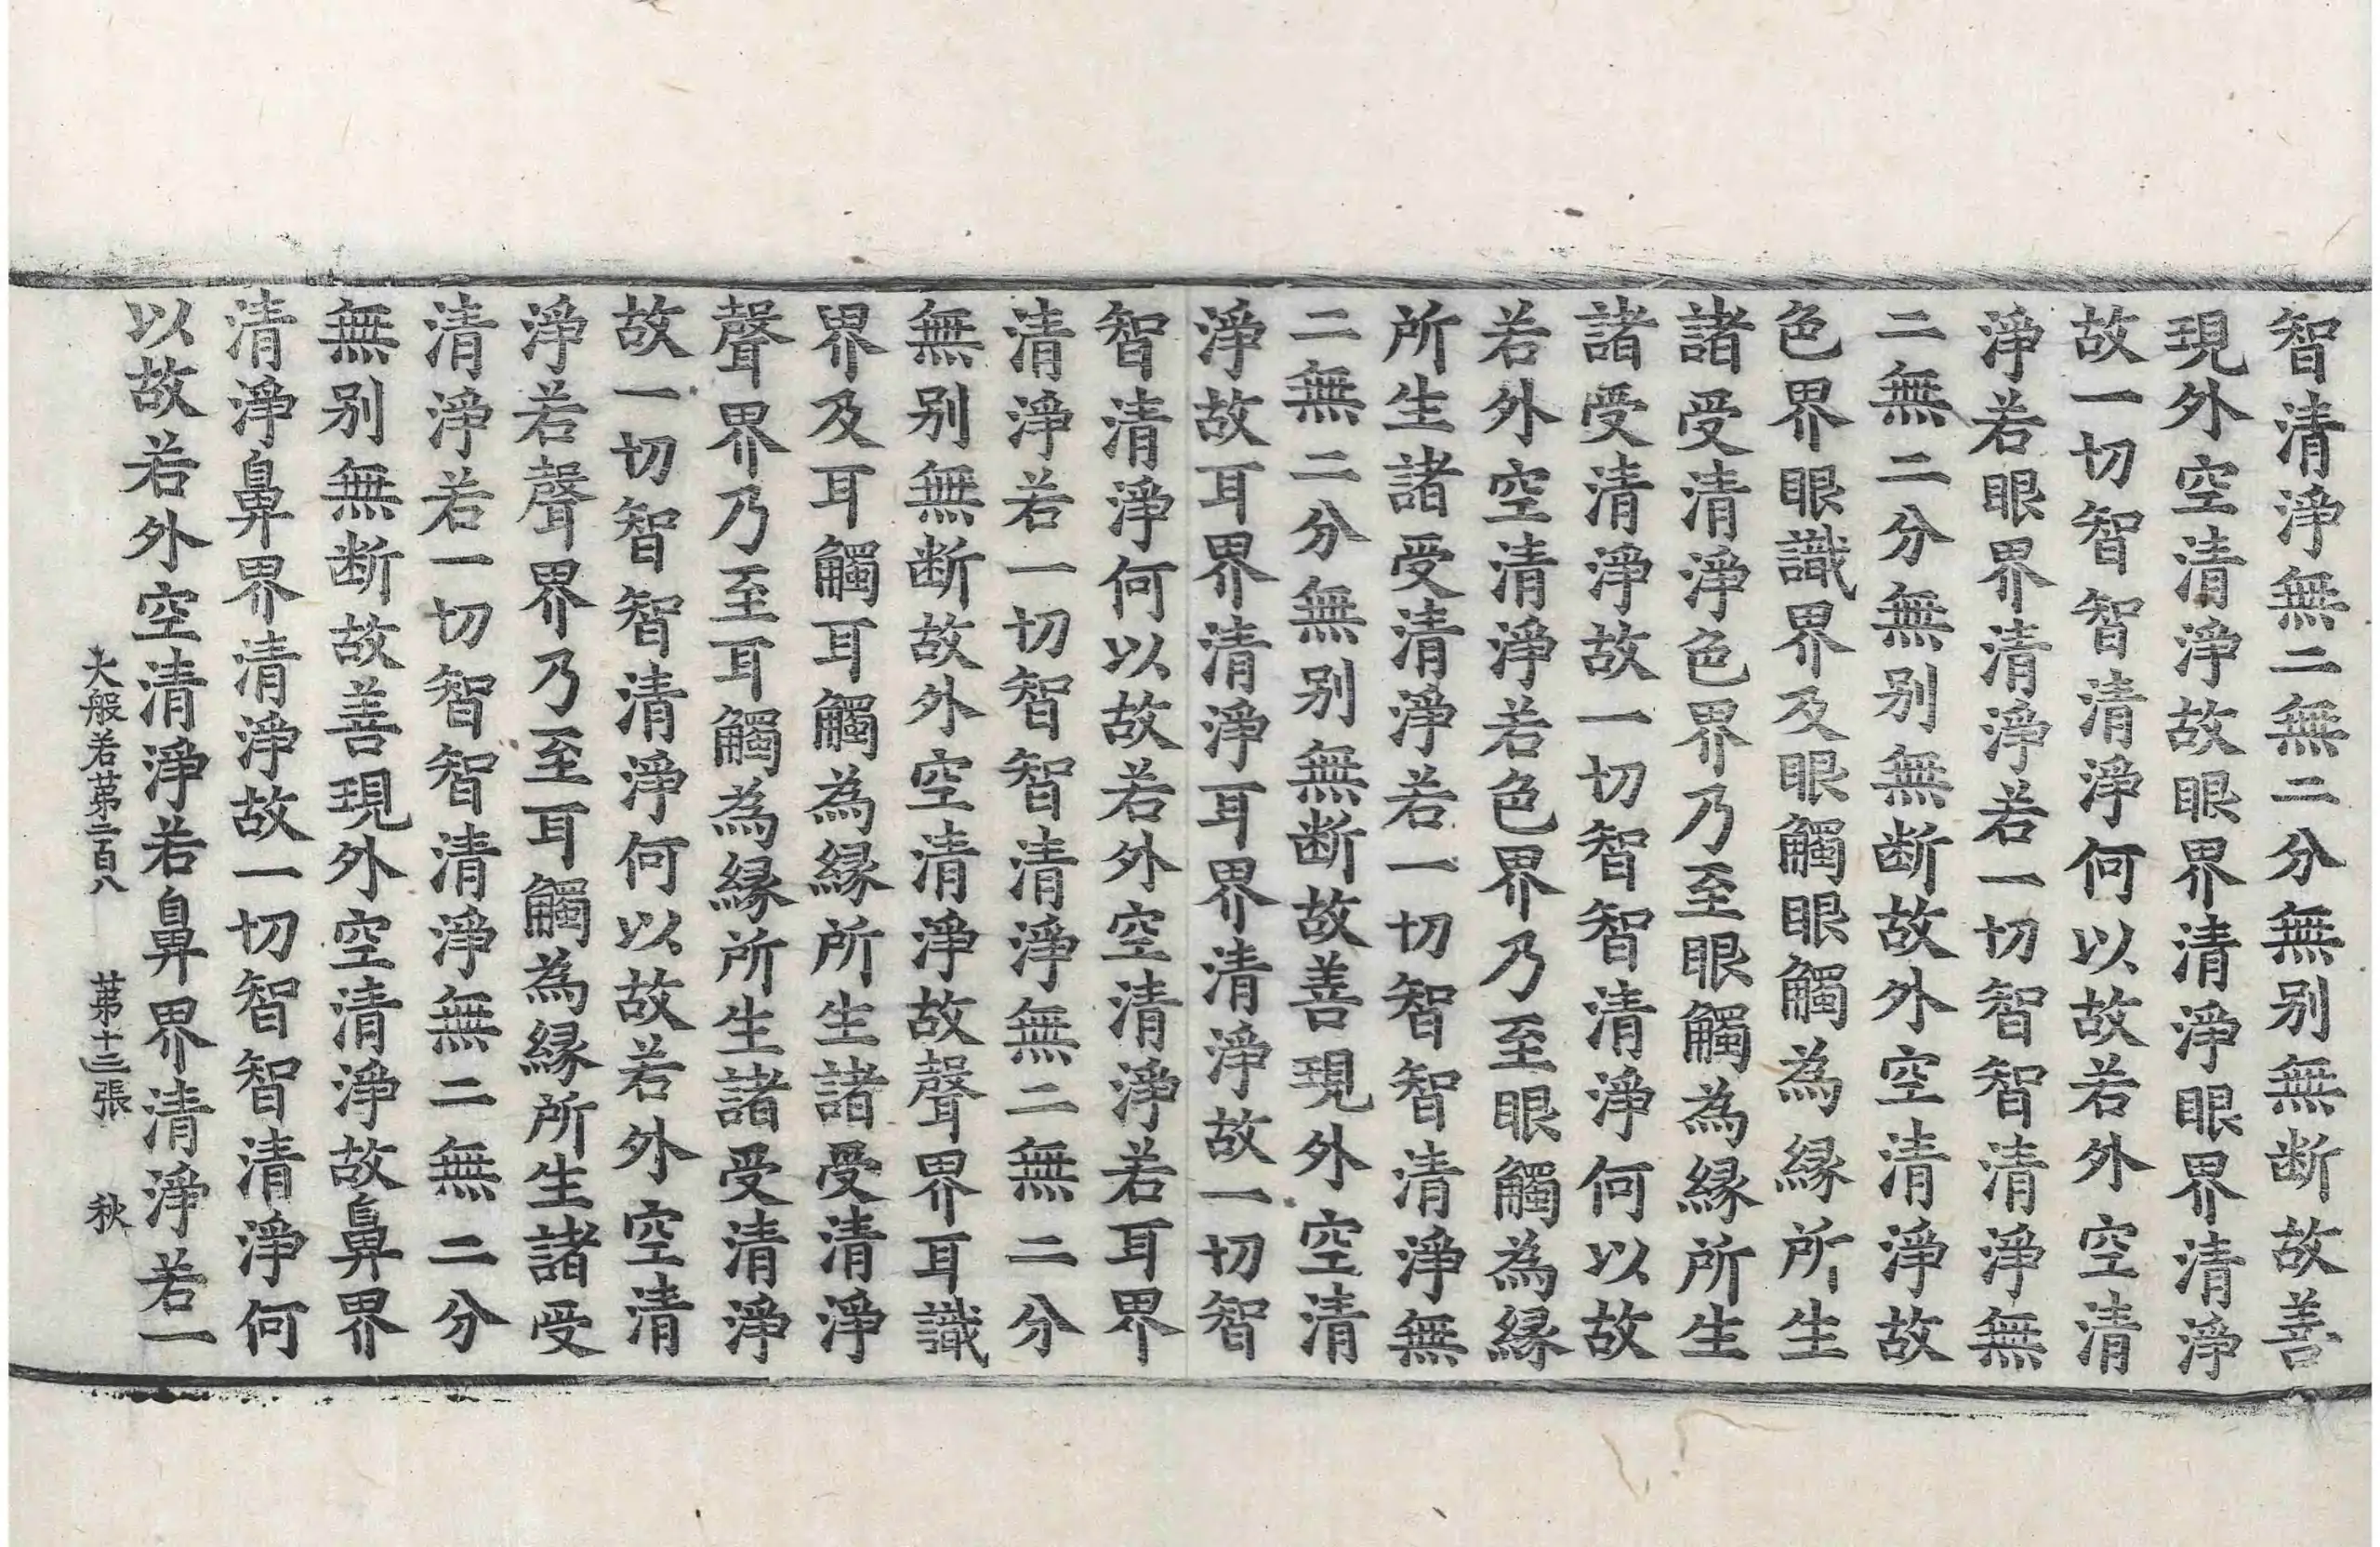 智清淨無二無二分無別無断故善
現外空清淨故眼界清淨眼界清淨
故一切智智清淨何以故若外空清
淨若眼界清淨若一切智智清淨無
二無二分無別無断故外空清淨故
色界眼識界及眼觸眼觸為縁所生
諸受清淨色界乃至眼觸為縁所生
諸受清淨故一切智智清淨何以故
若外空清淨若色界乃至眼觸為縁
所生諸受清淨若一切智智清淨無
二無二分無別無断故善現外空清
淨故耳界清淨耳界清淨故一切智
智清淨何以故若外空清淨若耳界
清淨若一切智智清淨無二無二分
無別無断故外空清淨故聲界耳識
界及耳觸耳觸為縁所生諸受清淨
聲界乃至耳觸為縁所生諸受清淨
故一切智智清淨何以故若外空清
淨若聲界乃至耳觸為縁所生諸受
清淨若一切智智清淨無二無二分
無別無断故善現外空清淨故鼻界
清淨鼻界清淨故一切智智清淨何
以故若外空清淨若鼻界清淨若一
大般若苐二百八 苐十三張 秋